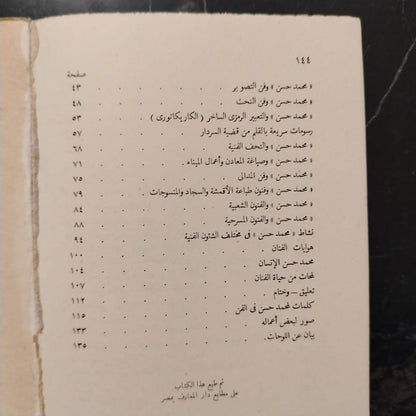 ١٤٤
صفحة
« محمد حسن » وفن التصوير . . . . . . ٤٣
« محمد حسن » وفن النحت . . . . . . ٤٨
« محمد حسن » والتعبير الرمزى الساخر ( الكاريكاتورى ) . . ٥٣
رسومات سريعة بالقلم من قضية السردار . . . . ٥٧
« محمد حسن » والتحف الفنية . . . . . ٦٨
« محمد حسن » وصياغة المعادن وأعمال الميناء . . . . ٧١
« محمد حسن » وفن المدالى . . . . . . ٧٥
« محمد حسن » وفنون طباعة الأقمشة والسجاد والمنسوجات . . . ٧٩
« محمد حسن » والفنون الشعبية . . . . . ٨٤
« محمد حسن » والفنون المسرحية . . . . . ٨٨
نشاط « محمد حسن » فى مختلف الشئون الفنية . . . . ٩٤
هوايات الفنان . . . . . . . ١٠٠
محمد حسن الإنسان . . . . . . . ١٠٤
لمحات من حياة الفنان . . . . . . ١٠٧
تعليق – وختام . . . . . . . ١١٢
كلمات لمحمد حسن فى الفن . . . . . . ١١٥
صور لبعض أعماله . . . . . . . ١٣٣
بيان عن اللوحات . . . . . . . ١٣٥
تم طبع هذا الكتاب
على مطابع دار المعارف بمصر